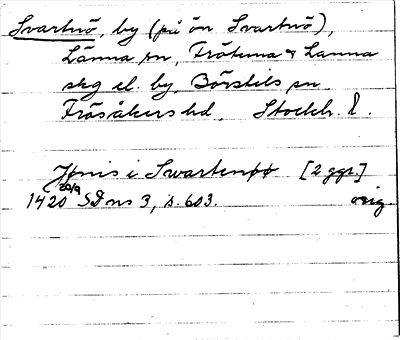 Svartnö, by (på ön Svartnö),
Länna sn, Frötuna & Länna
skg el. by, Börstils sn.
Frösåkers hd, Stockh. l.
Jønis i Swartenøø [2 ggr.]
1420 20/9 SD ns 3, s. 603. orig.